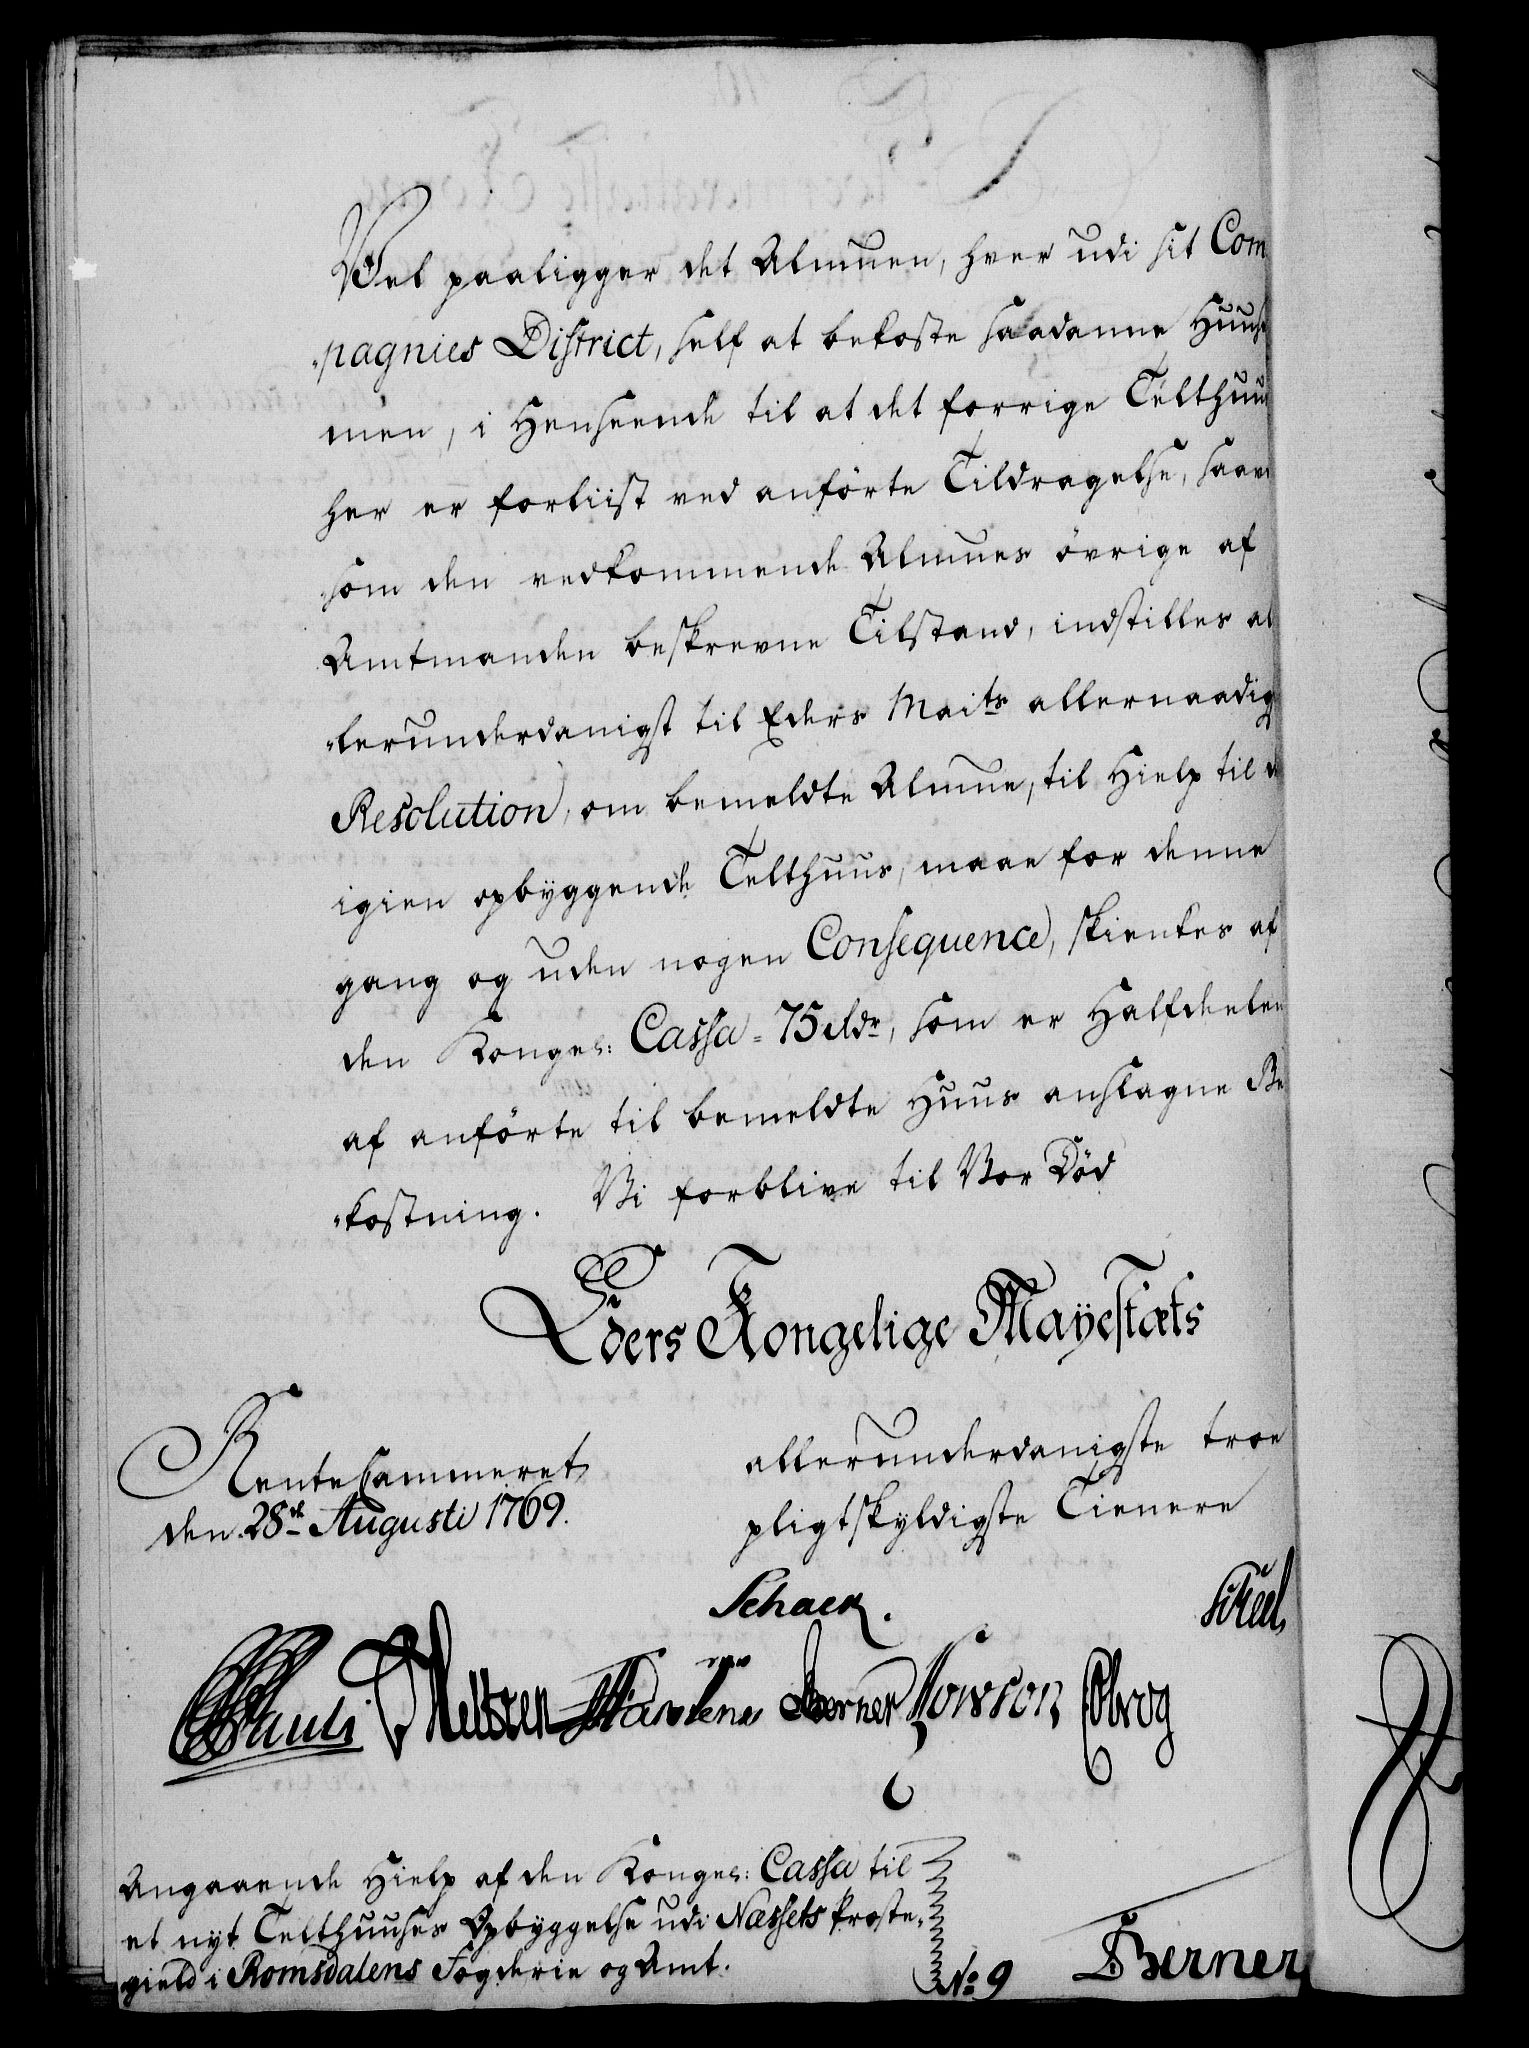 Vel paaligger det Almuen, hver udi sit Com
-pagnies District, self at bekoste saadanne Huuse
men, i Henseende til at det forrige Telthuus
her er forliist ved anførte Tildragelse, saavel
som den vedkommende Almues øvrige af
Amtmanden beskrevne Tilstand, indstilles al
-lerunderdanigst til Eders Maits allernaadig
Resolution, om bemeldte Almue, til Hielp til
igien opbyggende Telthuus, maae for denne
gang og uden nogen Consequence, skienkes af
den Kongel: Cassa = 75 Rdr, som er Halfdeelen
af anførte til bemeldte Huus anslagne Be
-kostning. Vi forblive til Vor Død
Eders Kongelige Mayestæts
allerunderdanigste troe
pligtskyldigste Tienere
RenteCammeret
den 28de Augusti 1769.
Schack.
Pauli Berner Cobrog
Angaaende Hielp af den Kongel: Cassa til
et nyt Telthuuses Opbyggelse udi Næssets Præste-
gield i Romsdalens Fogderie og Amt.
No 9
Berner